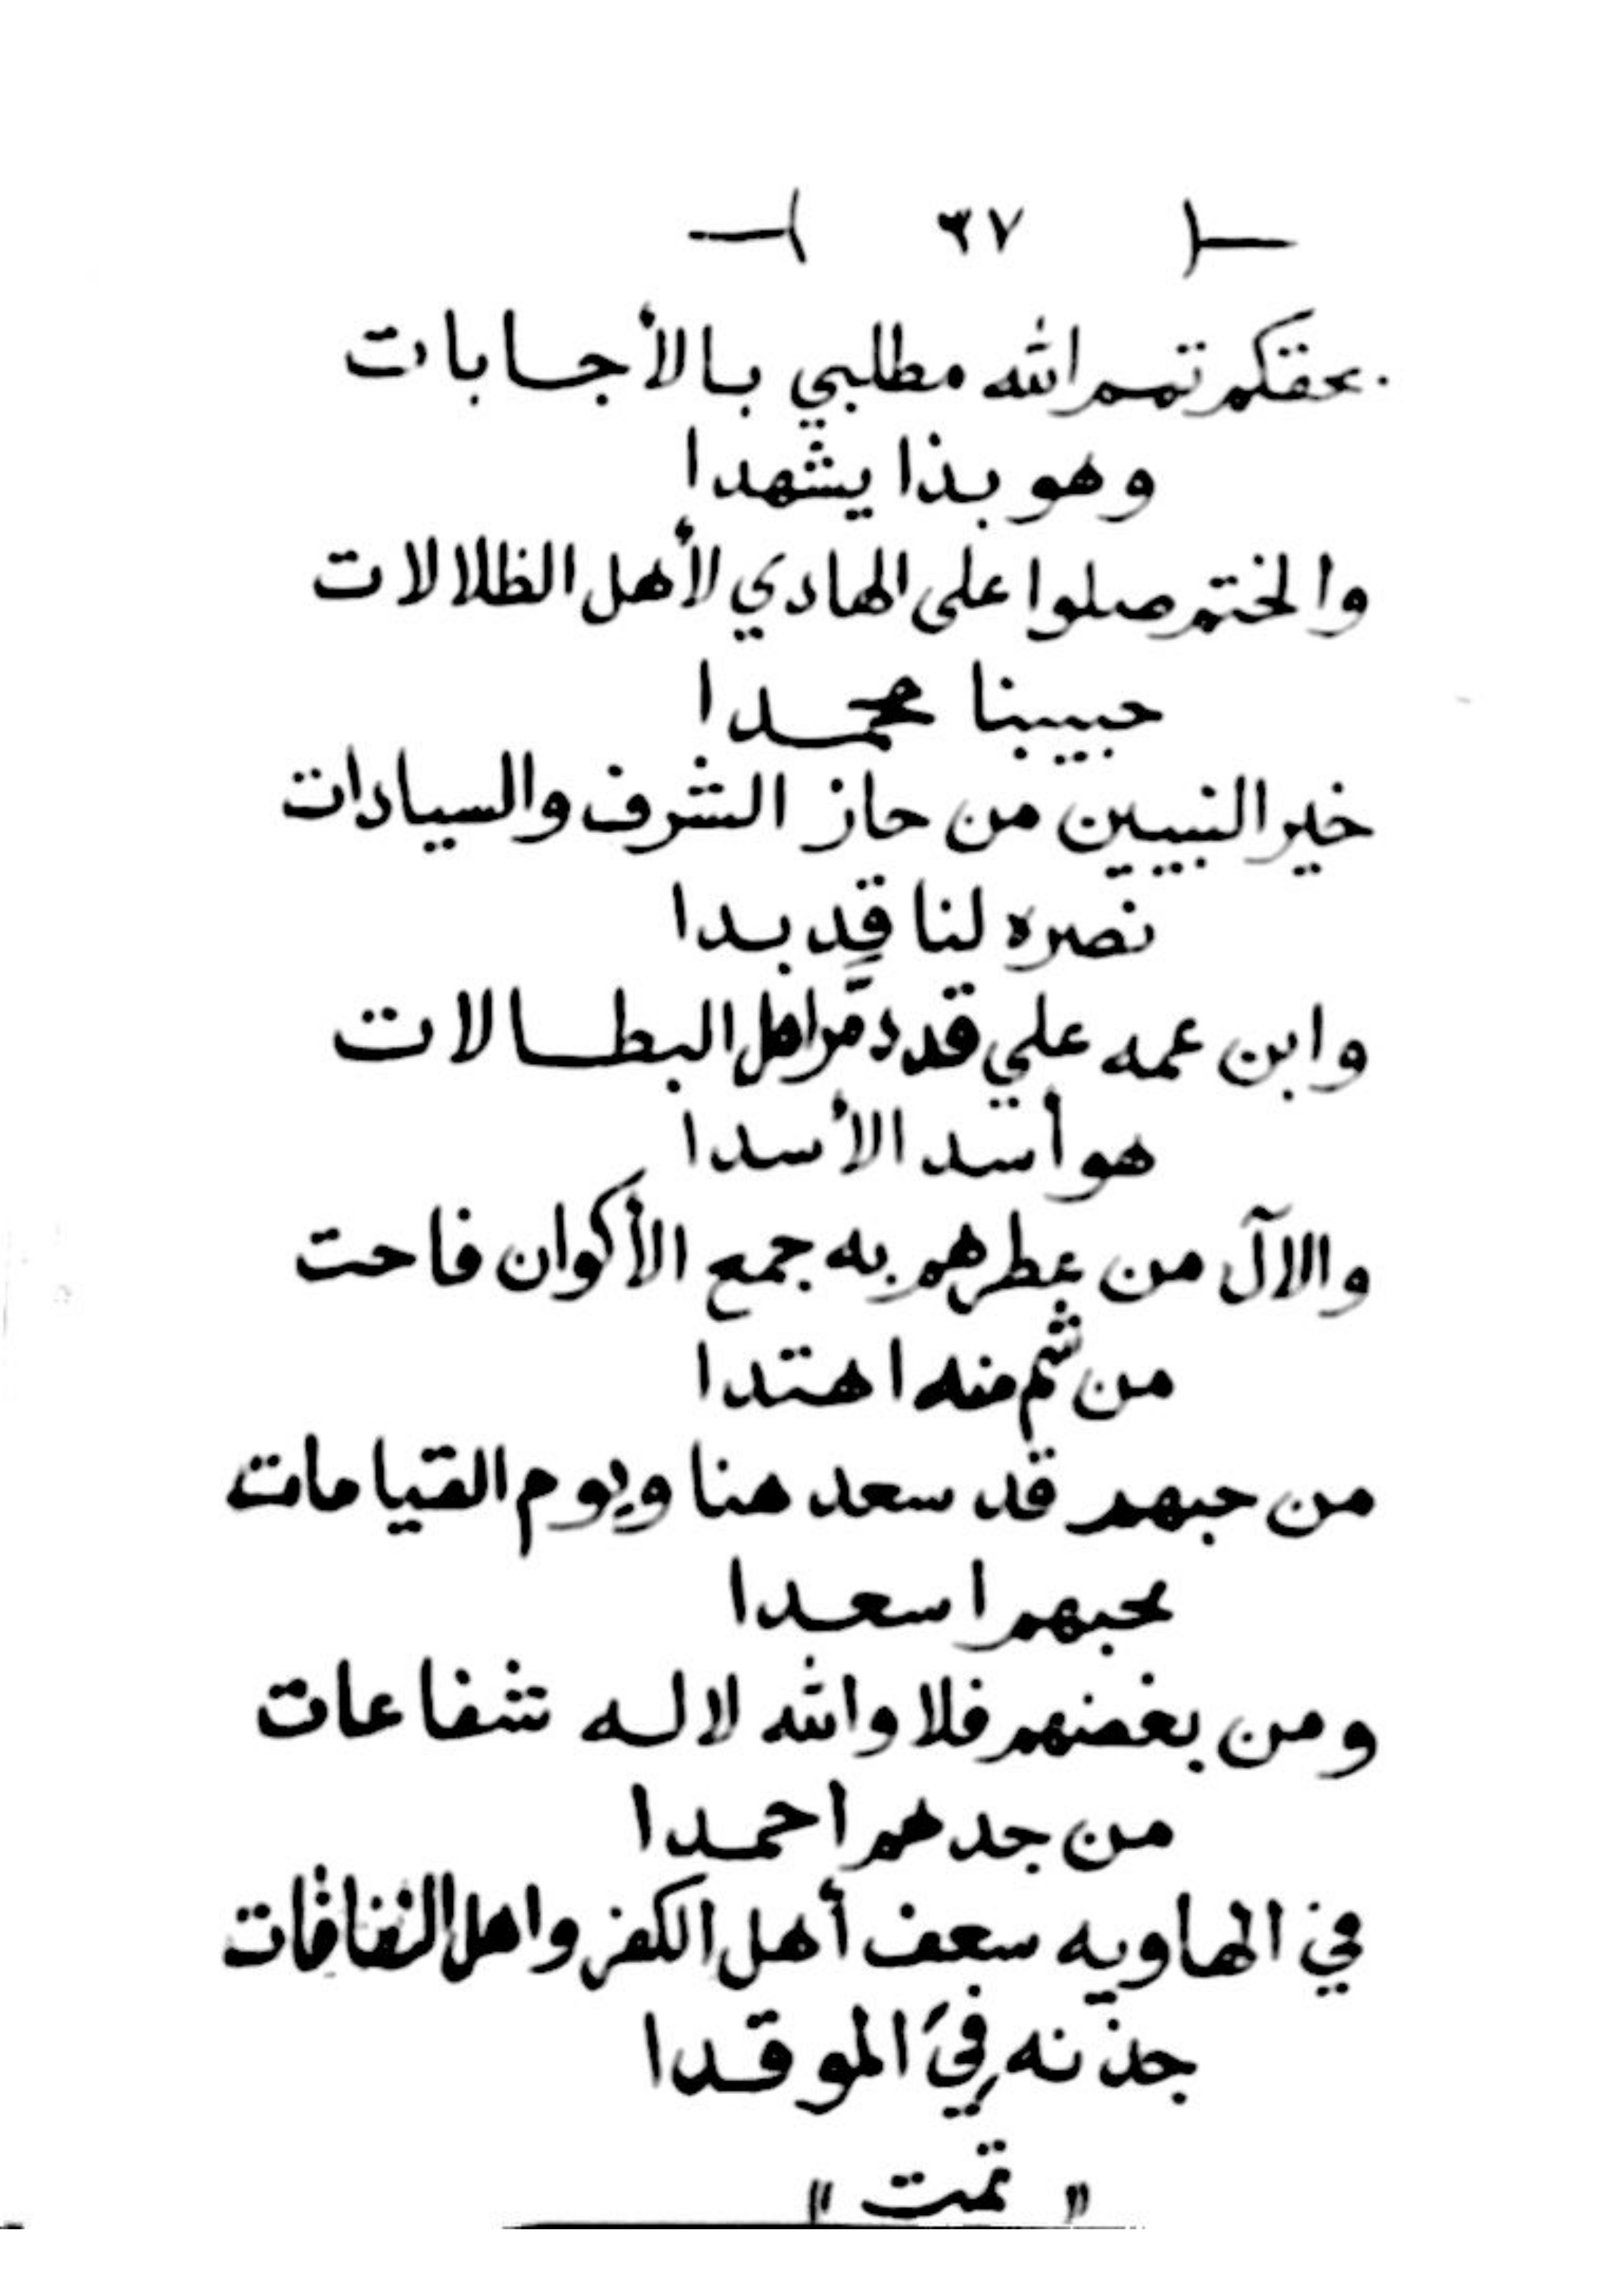 ٣٧
بحقكم تمم الله مطلبي بالأجابات
وهو بذا يشهدا
والختم صلوا على الهادي لأهل الظلالات
حبيبنا محمدا
خير النبيين من حاز الشرف والسيادات
نصره لنا قد بدا
وابن عمه علي قد دمّر اهل البطالات
هو أسد الأسدا
والآل من عطرهم به جمع الأكوان فاحت
من شم منه اهتدا
من حبهم قد سعد هنا ويوم القيامات
بحبهم اسعدا
ومن بغضهم فلا والله لا له شفاعات
من جدهم احمدا
في الهاويه سعف أهل الكفر واهل النفاقات
في الموقدا
" تمت "